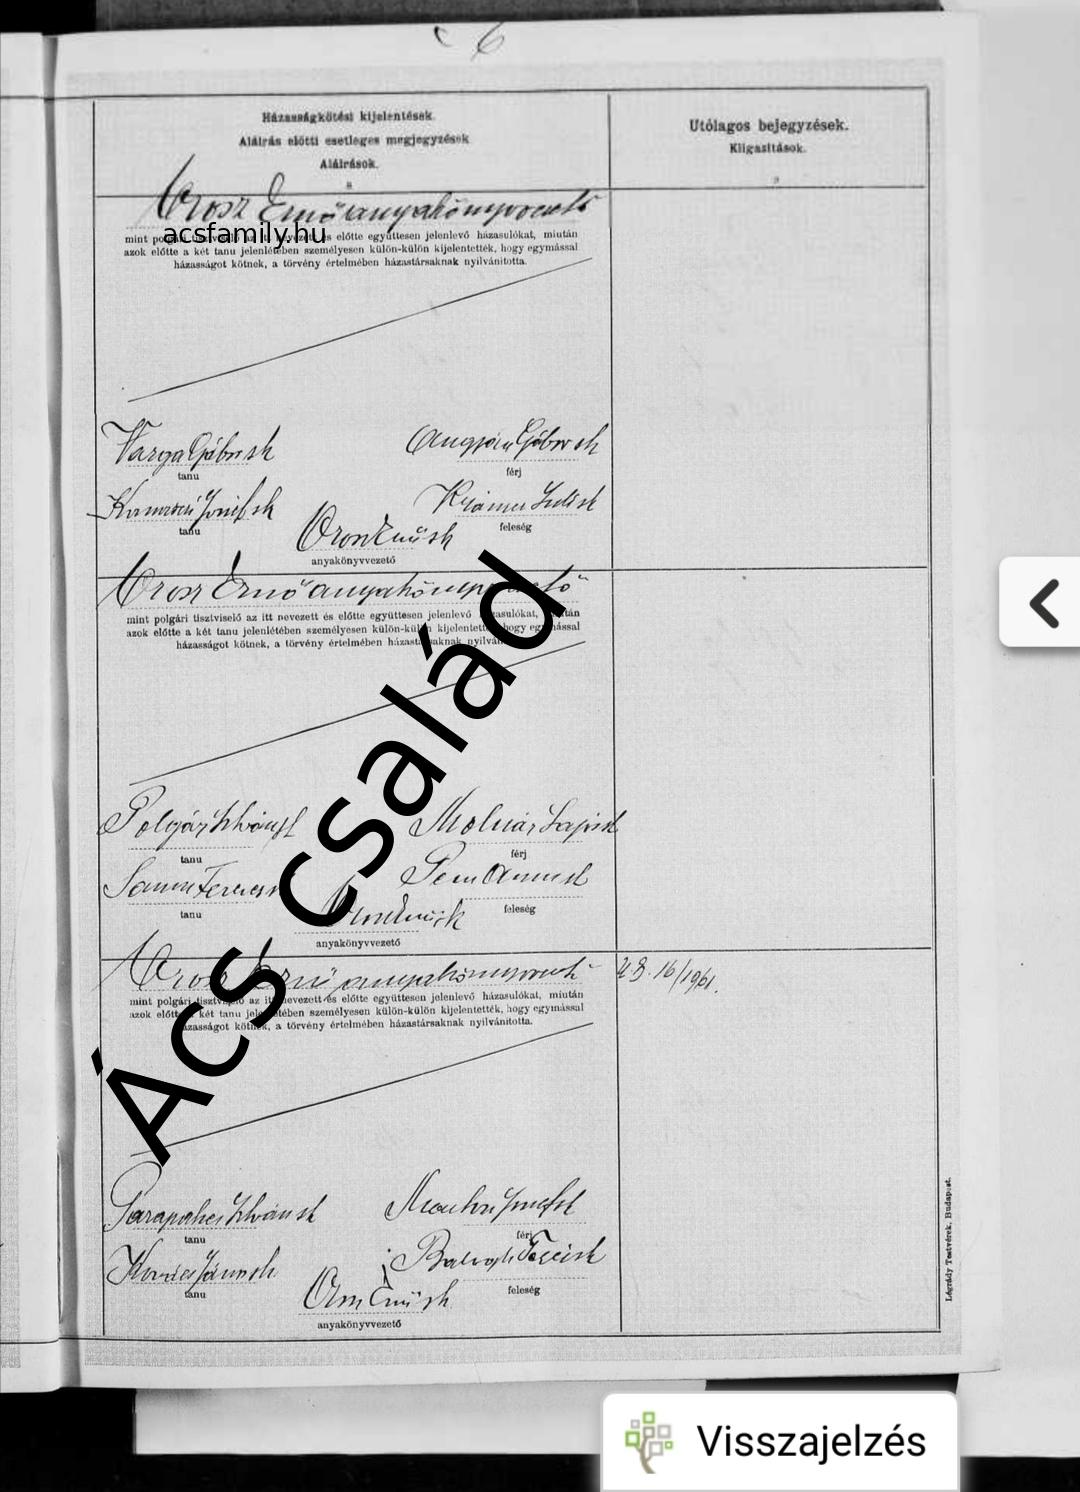 Házasságkötési kijelentések.
Aláírás előtti esetleges megjegyzések
Aláírások.
8
Utólagos bejegyzések.
Kiigazítások.
9
Orosz Ernő anyakönyvvezető
acsfamily.hu
mint polgári tisztviselő az itt nevezett és előtte együttesen jelenlevő házasulókat, miután
azok előtte a két tanu jelenlétében személyesen külön-külön kijelentették, hogy egymással
házasságot kötnek, a törvény értelmében házastársaknak nyilvánította.
Varga Gábor sk
tanu
férj
József sk
tanu
feleség
Orosz Ernő sk
anyakönyvvezető
Orosz Ernő anyakönyvvezető
mint polgári tisztviselő az itt nevezett és előtte együttesen jelenlevő házasulókat, miután
azok előtte a két tanu jelenlétében személyesen külön-külön kijelentették, hogy egymással
házasságot kötnek, a törvény értelmében házastársaknak nyilvánította.
Ács család
Polgár István sk
tanu
Molnár Lajos sk
férj
Ferenc sk
tanu
feleség
Orosz Ernő sk
anyakönyvvezető
Orosz Ernő anyakönyvvezető
16/1961.
mint polgári tisztviselő az itt nevezett és előtte együttesen jelenlevő házasulókat, miután
azok előtte a két tanu jelenlétében személyesen külön-külön kijelentették, hogy egymással
házasságot kötnek, a törvény értelmében házastársaknak nyilvánította.
István sk
tanu
József sk
férj
Kovács János sk
tanu
Balogh Teréz sk
feleség
Orosz Ernő sk
anyakönyvvezető
Légrády Testvérek, Budapest.
Visszajelzés